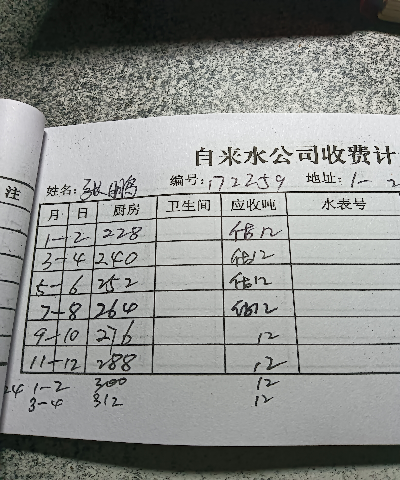 自来水公司收费计
注 姓名: 张鹏 编号: 172259 地址: 1-2
月 日 厨房 卫生间 应收吨 水表号
1-2 228 估12
3-4 240 估12
5-6 252 估12
7-8 264 估12
9-10 276 12
11-12 288 12
24 1-2 300 12
3-4 312 12